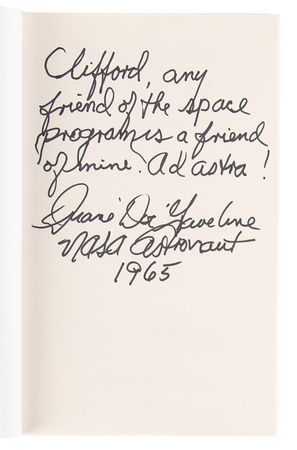 Clifford, any
friend of the space
program is a friend
of mine. Ad astra!
Duane "Doc" Graveline
NASA Astronaut
1965